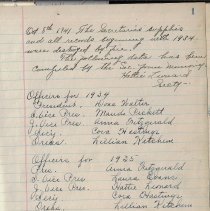 1
Oct. 8th 1941 The Secretaries supplies
and all records beginning with 1934
were destroyed by fire.
The following data has been
compiled by the Sec. from memory.
Hattie Linard
Secty.
Officers for 1934
President. Dora Walter
S. Vice Pres. Maude Pickett
J. Vice Pres. Anna Fitzgerald
Secty. Cora Hastings
Treas. Lillian Ketchem
Officers for 1935
Pres. Anna Fitzgerald
S. Vice Pres. Laura Evans
J. Vice Pres. Hattie Linard
Secty. Cora Hastings
Treas. Lillian Ketchem